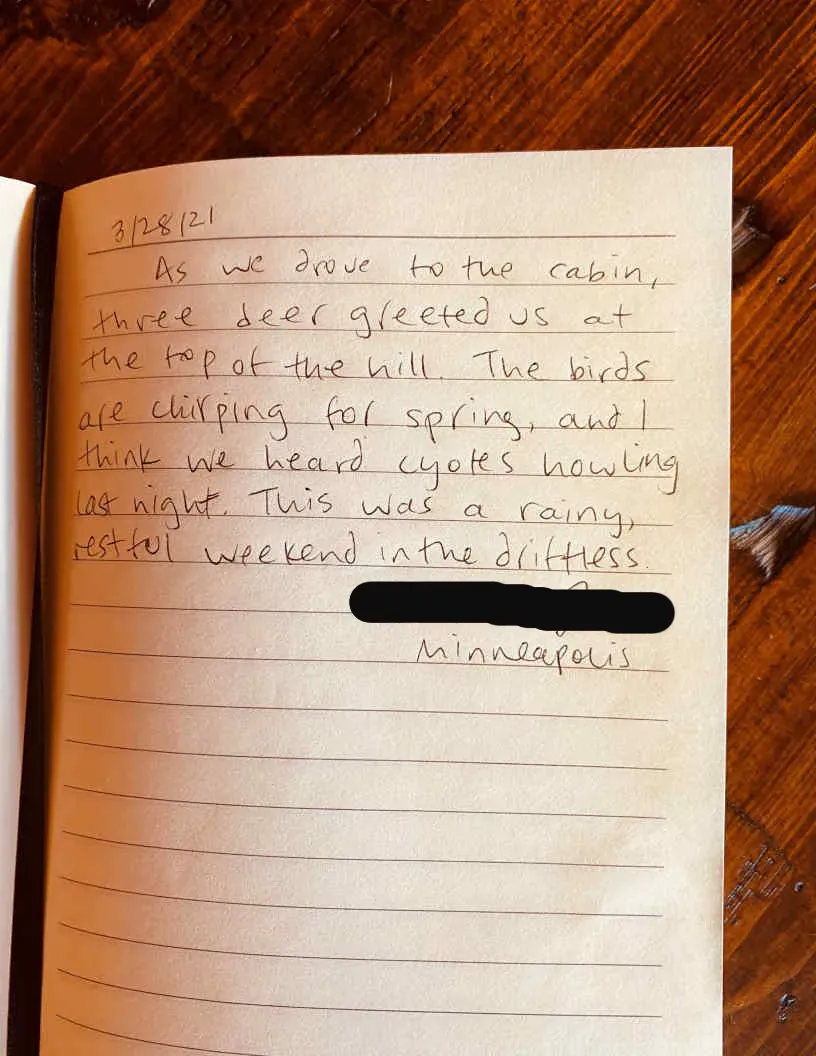 3/28/21
As we drove to the cabin,
three deer greeted us at
the top of the hill. The birds
are chirping for spring, and I
think we heard cyotes howling
last night. This was a rainy,
restful weekend in the driftless.
Minneapolis